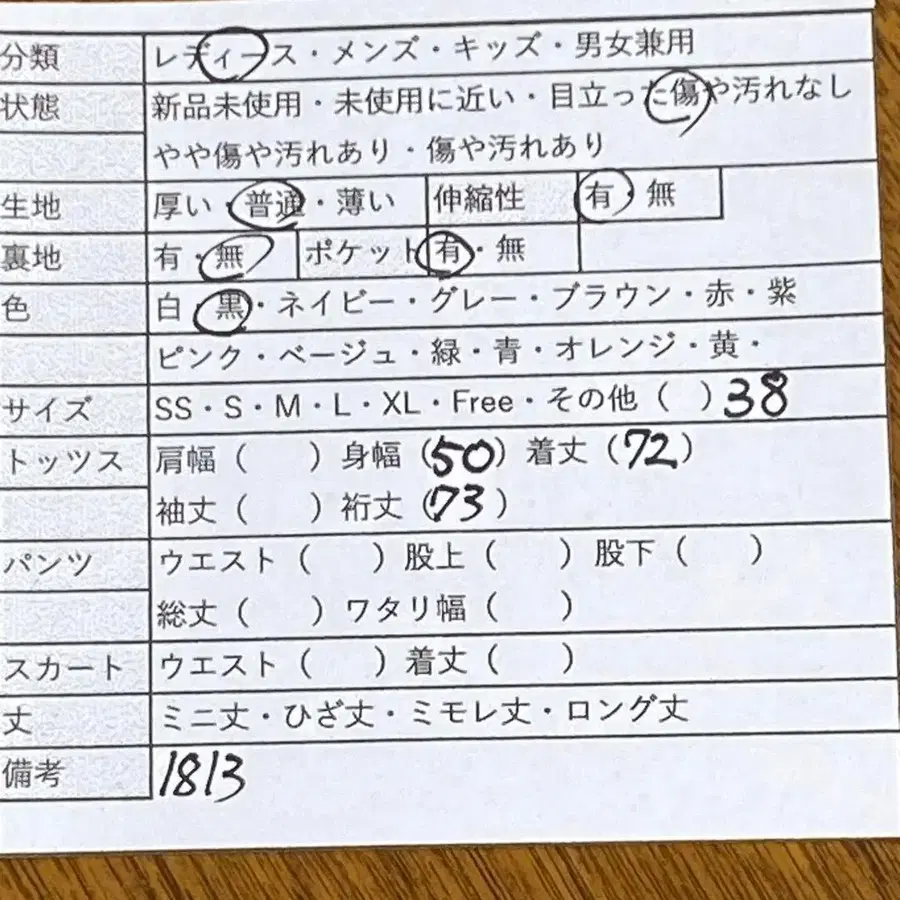 分類 レディース・メンズ・キッズ・男女兼用
状態 新品未使用・未使用に近い・目立った傷や汚れなし
やや傷や汚れあり・傷や汚れあり
生地 厚い・普通・薄い 伸縮性 有・無
裏地 有・無 ポケット 有・無
色 白・黒・ネイビー・グレー・ブラウン・赤・紫
ピンク・ベージュ・緑・青・オレンジ・黄・
サイズ SS・S・M・L・XL・Free・その他（ ）38
トッツス 肩幅（ ）身幅（50）着丈（72）
袖丈（ ）裄丈（73）
パンツ ウエスト（ ）股上（ ）股下（ ）
総丈（ ）ワタリ幅（ ）
スカート ウエスト（ ）着丈（ ）
丈 ミニ丈・ひざ丈・ミモレ丈・ロング丈
備考 1813